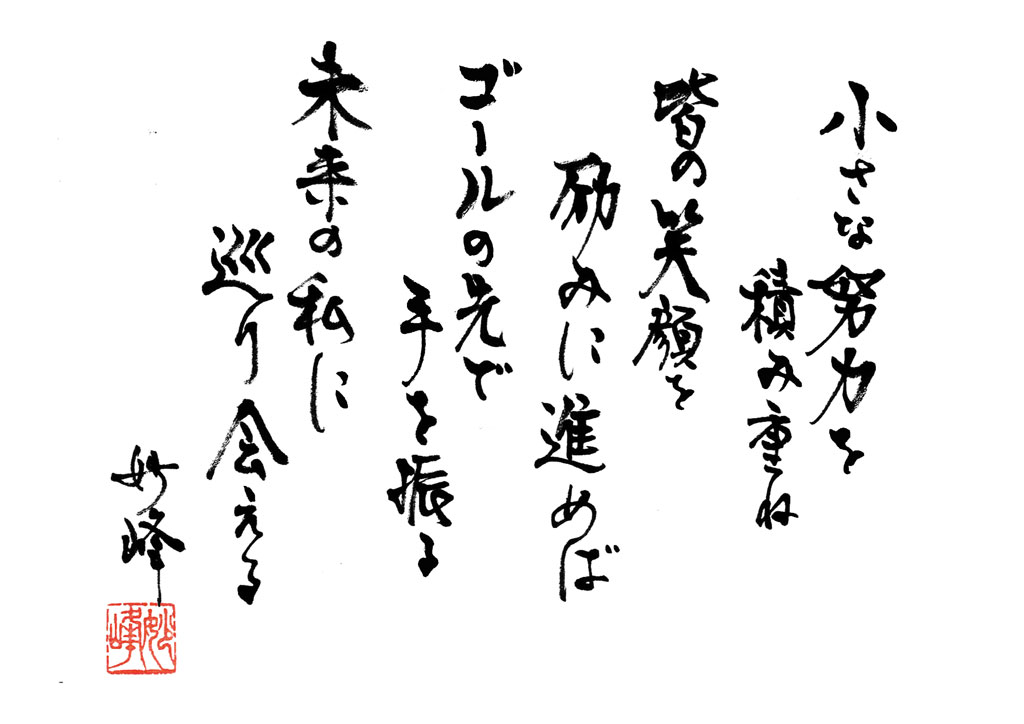 小さな努力を
積み重ね
皆の笑顔を
励みに進めば
ゴールの先で
手を振る
未来の私に
巡り会える
妙峰
妙峰